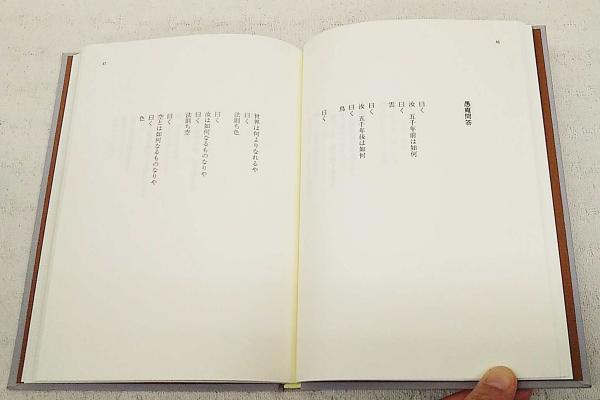 46
愚庵問答
曰く
汝 五千年前は如何
曰く
雲
曰く
汝 五千年後は如何
曰く
鳥
曰く
47
世界は何よりなれるや
曰く
法則ち色
曰く
汝は如何なるものなりや
曰く
法則ち空
曰く
空とは如何なるものなりや
曰く
色